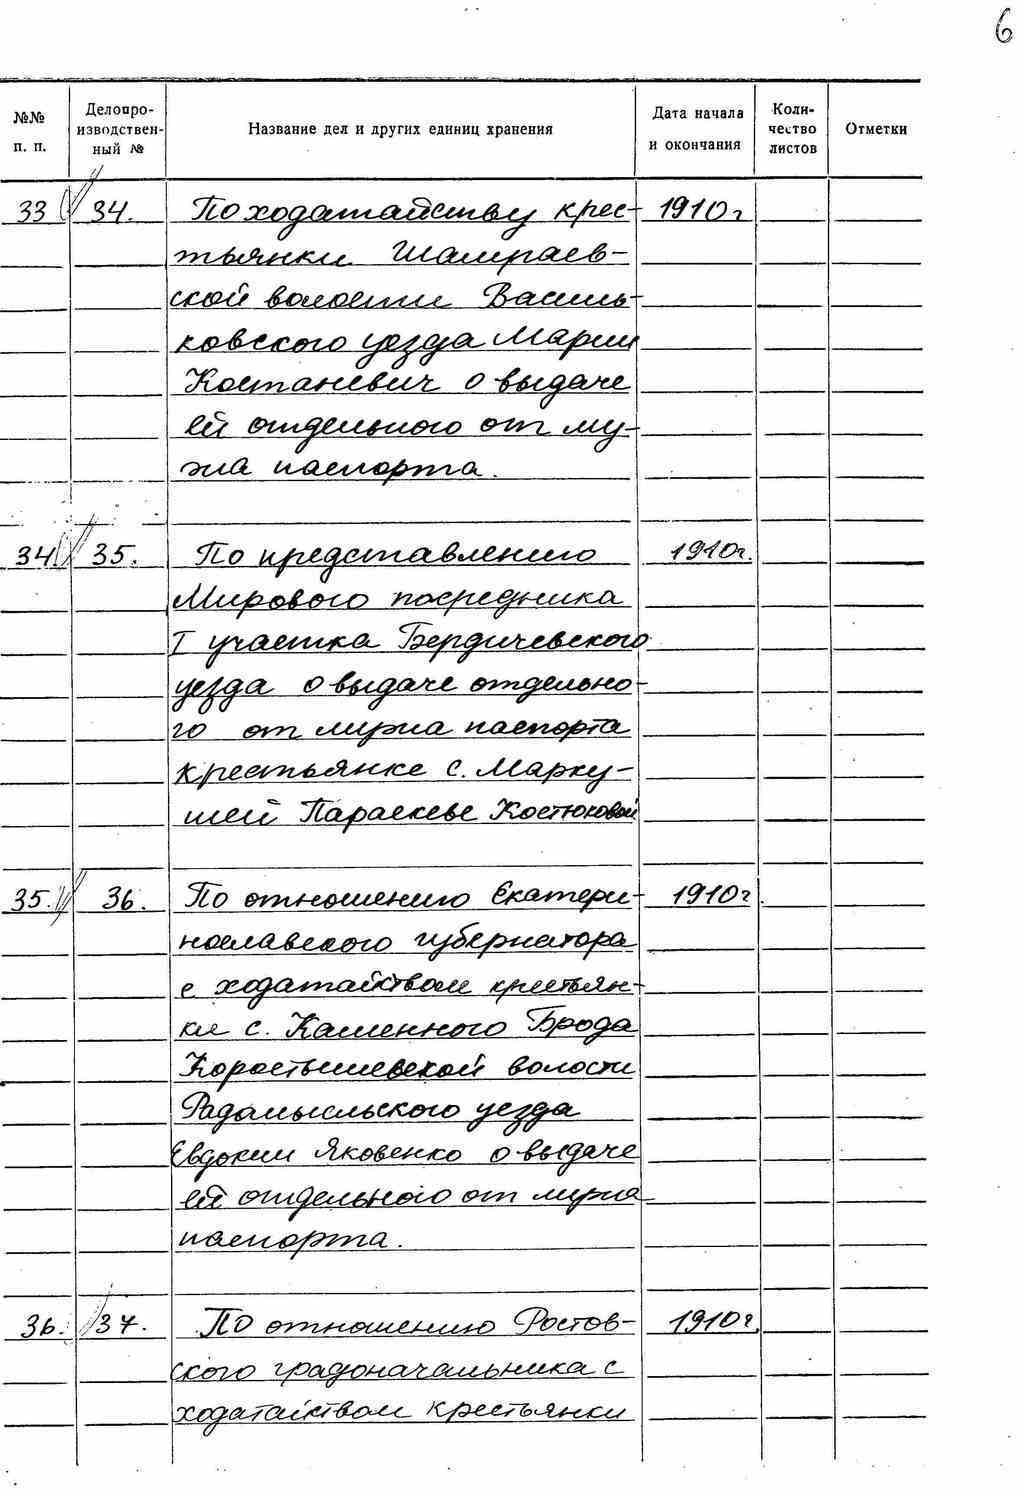 6
№№ п. п. Делопро- изводствен- ный № Название дел и других единиц хранения Дата начала и окончания Коли- чество листов Отметки
33 34. По ходатайству крес- 1910г
тьянки Шамраев-
ской волости Василь-
ковского уезда Марии
Костаневич о выдаче
ей отдельного от му-
жа паспорта.
34 35. По представлению 1910г.
Мирового посредника
I участка Бердичевского
уезда о выдаче отдельно-
го от мужа паспорта
крестьянке с. Марку-
шей Параскеве Костюковой
35. 36. По отношению Екатери- 1910г
нославского губернатора
с ходатайством крестьян-
ки с. Каменного Брода
Коростышевской волости
Радомысльского уезда
Евдокии Яковенко о выдаче
ей отдельного от мужа
паспорта.
36. 37. По отношению Ростов- 1910г.
ского градоначальника с
ходатайством крестьянки